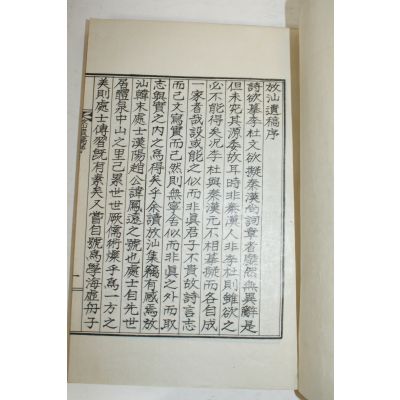 放汕遺稿序
詩欲摹李杜文欲擬秦漢尙詞章者靡然無異辭是
但未究其源委故耳時非秦漢人非李杜則雖欲之
必不能得矣况李杜與秦漢元不相摹擬而各自成
一家者哉設或能之似而非眞君子不貴故詩言志
而已文寫實而已然則無寧舍似而非眞之外而取
志與實之內之爲得矣乎余讀放汕集竊有感焉放
汕韓末處士漢陽趙公諱鳳遠之號也處士自先世
居醴泉中山之里已累世世厥儒術爍乎爲一方之
美則處士傳習旣有素矣又嘗自號爲學海虛舟子